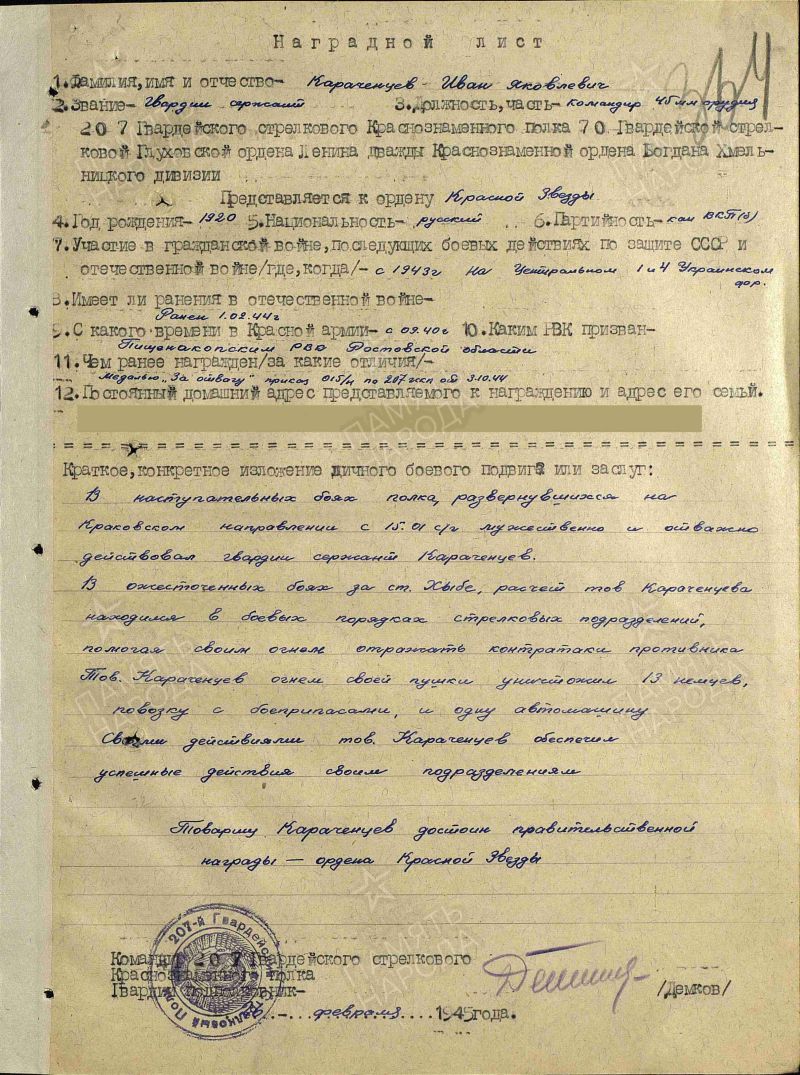 Наградной лист
1.Фамилия,имя и отчество- Караченцев Иван Яковлевич
2.Звание- Гвардии сержант 3.Должность,часть- командир 45мм орудия
207 Гвардейского стрелкового Краснознаменного полка 70 Гвардейской стрел-
ковой Глуховской ордена Ленина дважды Краснознаменной ордена Богдана Хмель-
ницкого дивизии
Представляется к ордену Красной Звезды
4.Год рождения- 1920 5.Национальность- русский 6.Партийность- кан ВКП(б)
7.Участие в гражданской войне,последующих боевых действиях по защите СССР и
отечественной войне/где,когда/- с 1943г на Центральном 1 и 4 Украинском
фр.
8.Имеет ли ранения в отечественной войне-
Ранен 1.02.44г
9.С какого времени в Красной армии- с 09.40г 10.Каким РВК призван-
Пищенакопским РВО Ростовской области
11.Чем ранее награжден/за какие отличия/-
Медалью "За отвагу" приказ 015/н по 207 гксп от 3.10.44
12.Постоянный домашний адрес представляемого к награждению и адрес его семьи.
Краткое,конкретное изложение личного боевого подвига или заслуг:
В наступательных боях полка, развернувшихся на
Краковском направлении с 15.01 с/г мужественно и отважно
действовал гвардии сержант Караченцев.
В ожесточенных боях за ст. Хыбе, расчет тов Караченцева
находился в боевых порядках стрелковых подразделений,
помогая своим огнем отражать контратаки противника
Тов. Караченцев огнем своей пушки уничтожил 13 немцев,
повозку с боеприпасами, и одну автомашину
Своими действиями тов. Караченцев обеспечил
успешные действия своим подразделениям
Товарищ Караченцев достоин правительственной
награды — ордена Красной Звезды
Командир 207 Гвардейского стрелкового
Краснознаменного полка
Гвардии подполковник- /Демков/
февраля 1945года.
207-й Гвардейский Стрелковый Полк
ПАМЯТЬ НАРОДА